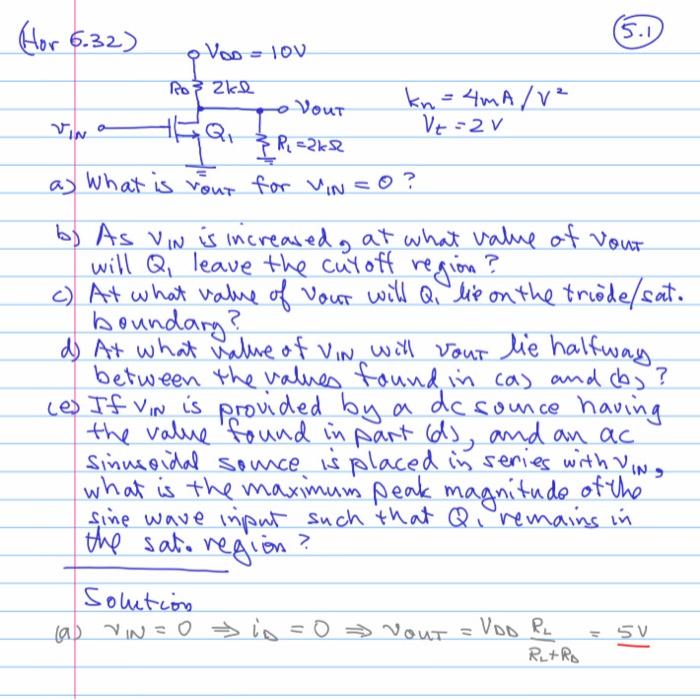 (Hor 6.32)
5.1
VDD = 10V
RD 2kΩ
VOUT
kn = 4mA/V²
Vt = 2V
vIN
Q1
RL = 2kΩ
a) What is vOUT for vIN = 0?
b) As vIN is increased, at what value of vOUT
will Q1 leave the cutoff region?
c) At what value of vOUT will Q1 lie on the triode/sat.
boundary?
d) At what value of vIN will vOUT lie halfway
between the values found in (a) and (b)?
(e) If vIN is provided by a dc source having
the value found in part (d), and an ac
sinusoidal source is placed in series with vIN,
what is the maximum peak magnitude of the
sine wave input such that Q1 remains in
the sat. region?
Solution
(a) vIN = 0 ⇒ iD = 0 ⇒ vOUT = VDD RL / (RL+RD) = 5V